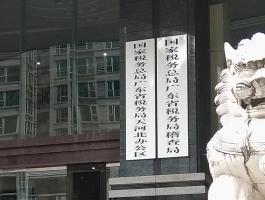 国家税务总局广东省税务局天河北办公区
国家税务总局广东省税务局稽查局